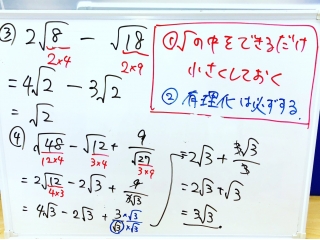 ③ 2√8 − √18
2×4 2×9
= 4√2 − 3√2
= √2
① √の中をできるだけ
小さくしておく
② 有理化は必ずする。
④ √48 − √12 + 9/√27
12×4 3×4 3×9
= 2√12 − 2√3 + 9/3√3
4×3
= 4√3 − 2√3 + 3×√3/√3×√3
= 2√3 + 3√3/3
= 2√3 + √3
= 3√3